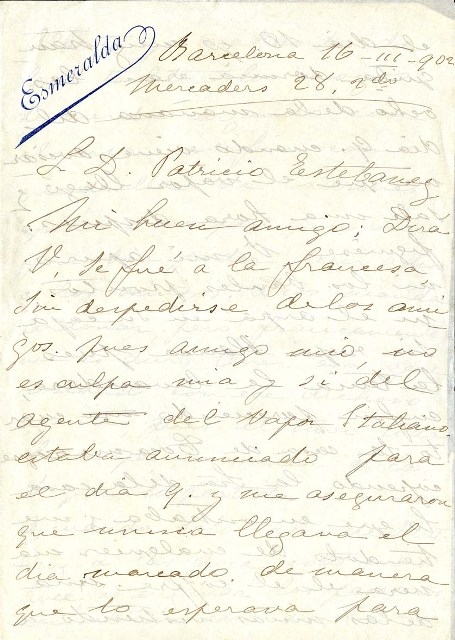 Esmeralda
Barcelona 16-III-902
Mercaders 28, 2do
S. D. Patricio Estebanez
Mi buen amigo; Dira
V, se fué a la francesa
sin despedirse de los ami
gos. pues amigo mio, no
es culpa mia y si del
agente del vapor Italiano
estaba anunciado para
el dia 9. y me aseguraron
que nunca llegava el
dia marcado. de manera
que lo esperava para